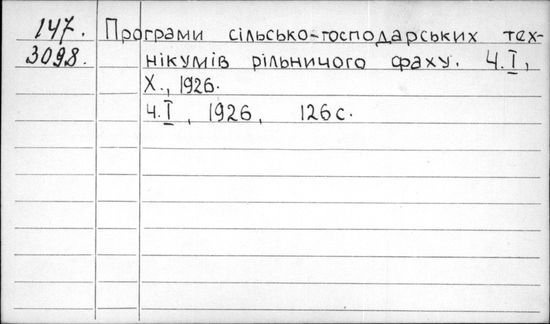 147. Програми сільсько-господарських тех-
3098. нікумів рільничого фаху. Ч.I,
Х., 1926.
Ч.I, 1926, 126 с.